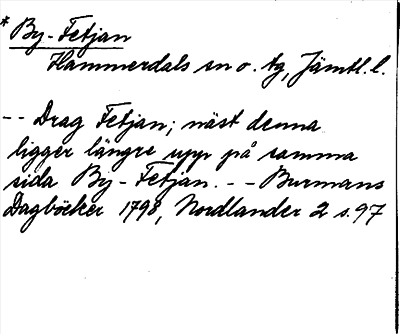 * By-Fetjan
Hammerdals sn o. tg, Jämtl. l.
-- Drag Fetjan; näst denna
ligger längre upp på samma
sida By-Fetjan. -- Burmans
Dagböcker 1798, Nordlander 2 s. 97